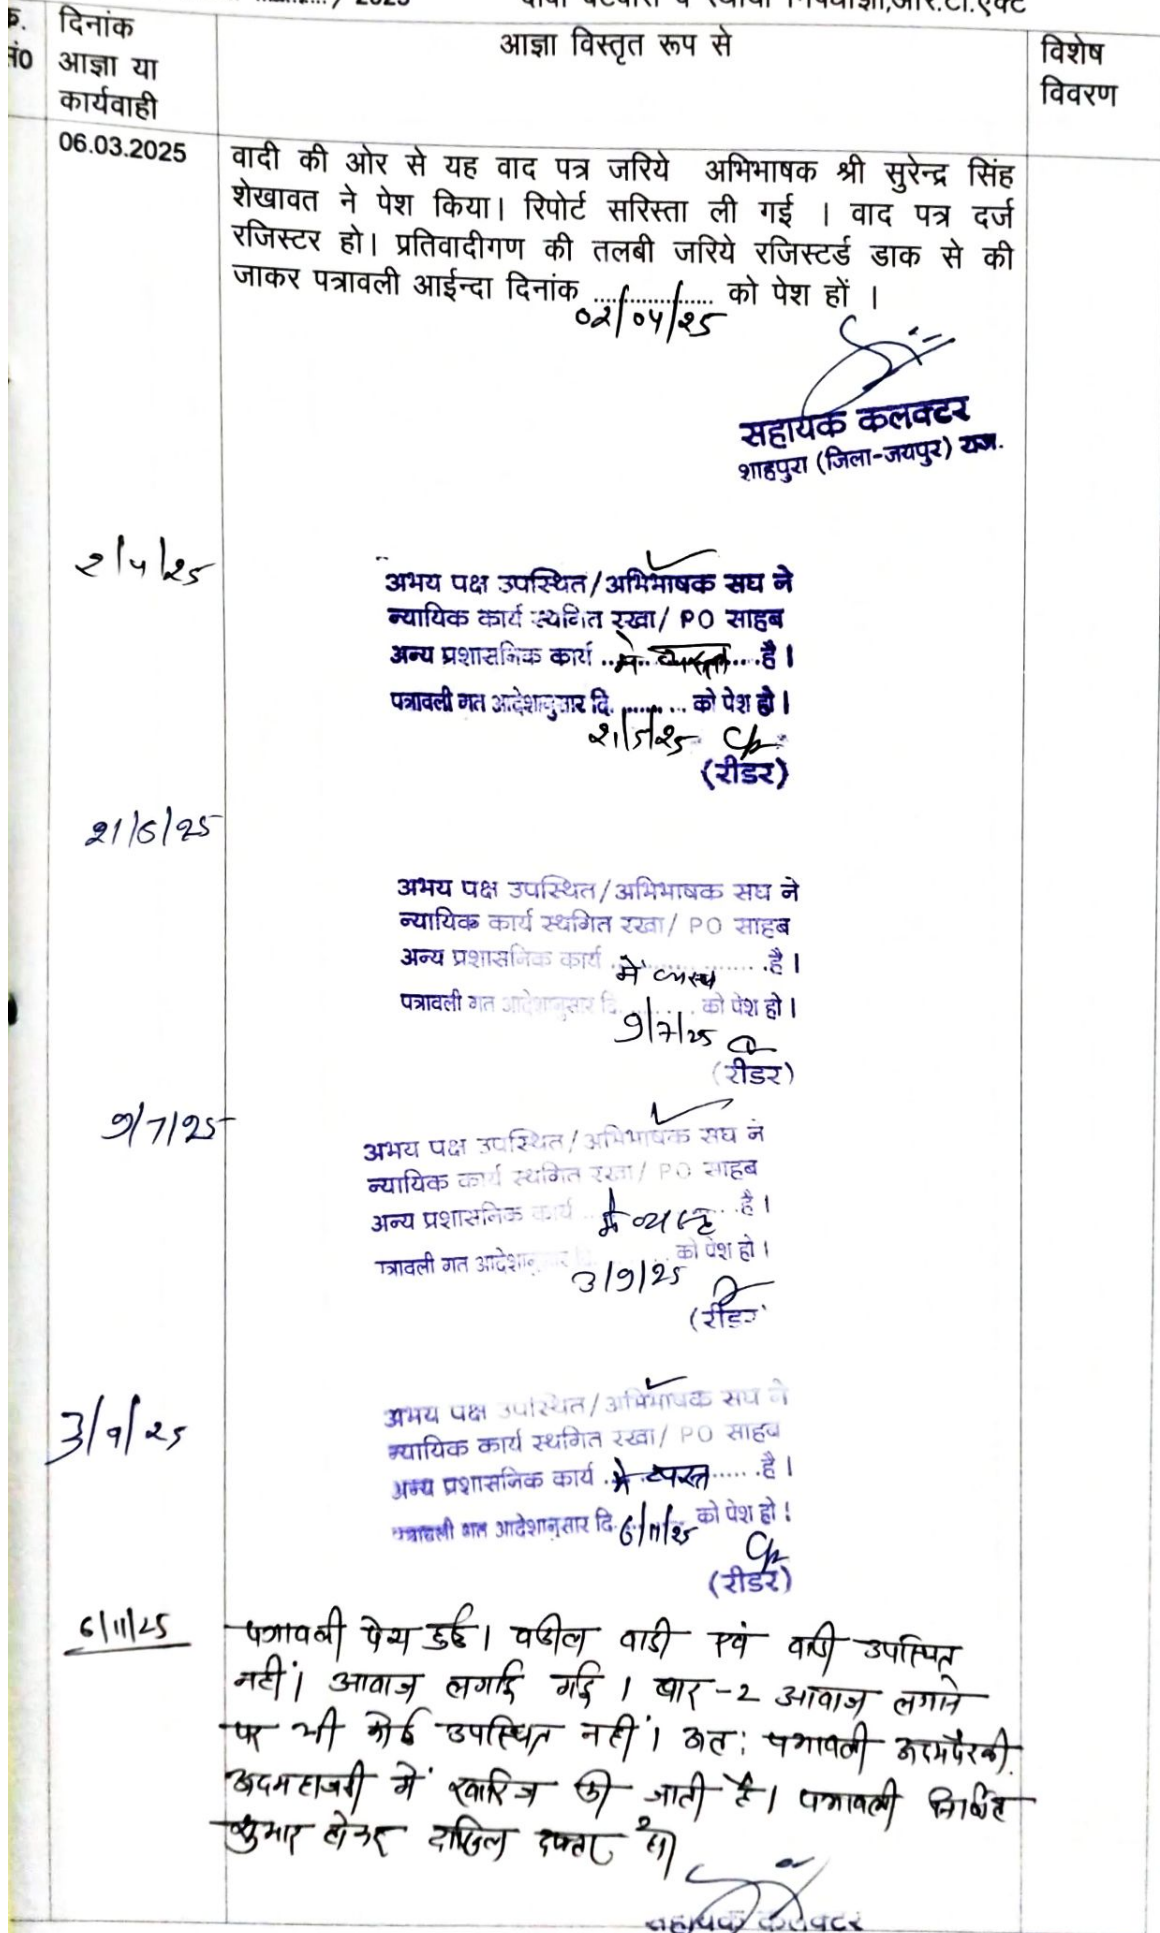 2025
क.
सं0
दिनांक
आज्ञा या
कार्यवाही
आज्ञा विस्तृत रूप से
विशेष
विवरण
06.03.2025
वादी की ओर से यह वाद पत्र जरिये अभिभाषक श्री सुरेन्द्र सिंह
शेखावत ने पेश किया। रिपोर्ट सरिस्ता ली गई । वाद पत्र दर्ज
रजिस्टर हो। प्रतिवादीगण की तलबी जरिये रजिस्टर्ड डाक से की
जाकर पत्रावली आईन्दा दिनांक .................... को पेश हों ।
02/04/25
सहायक कलक्टर
शाहपुरा (जिला-जयपुर) राज.
2/4/25
अभय पक्ष उपस्थित/अभिभाषक सघ ने
न्यायिक कार्य स्थगित रखा/ PO साहब
अन्य प्रशासनिक कार्य ..मे व्यस्त...है।
पत्रावली गत आदेशानुसार दि. ......... को पेश हो।
21/5/25
(रीडर)
21/5/25
अभय पक्ष उपस्थित/अभिभाषक सघ ने
न्यायिक कार्य स्थगित रखा/ PO साहब
अन्य प्रशासनिक कार्य ..में व्यस्त...है।
पत्रावली गत आदेशानुसार दि. ......... को पेश हो।
9/7/25
(रीडर)
9/7/25
अभय पक्ष उपस्थित/अभिभाषक सघ ने
न्यायिक कार्य स्थगित रखा/ PO साहब
अन्य प्रशासनिक कार्य ..में व्यस्त...है।
पत्रावली गत आदेशानुसार दि. को पेश हो।
3/9/25
(रीडर
3/9/25
अभय पक्ष उपस्थित/अभिभाषक सघ ने
न्यायिक कार्य स्थगित रखा/ PO साहब
अन्य प्रशासनिक कार्य ..मे व्यस्त......है।
पत्रावली गत आदेशानुसार दि. 6/11/25 को पेश हो।
(रीडर)
6/11/25
पत्रावली पेश हुई। वकील वादी एवं वादी उपस्थित
नहीं। आवाज लगाई गई। बार-2 आवाज लगाने
पर भी कोई उपस्थित नहीं। अत: पत्रावली अदमपैरवी
अदमहाजरी में खारिज की जाती है। पत्रावली निर्णित
शुमार होकर दाखिल दफ्तर हो।
सहायक कलक्टर